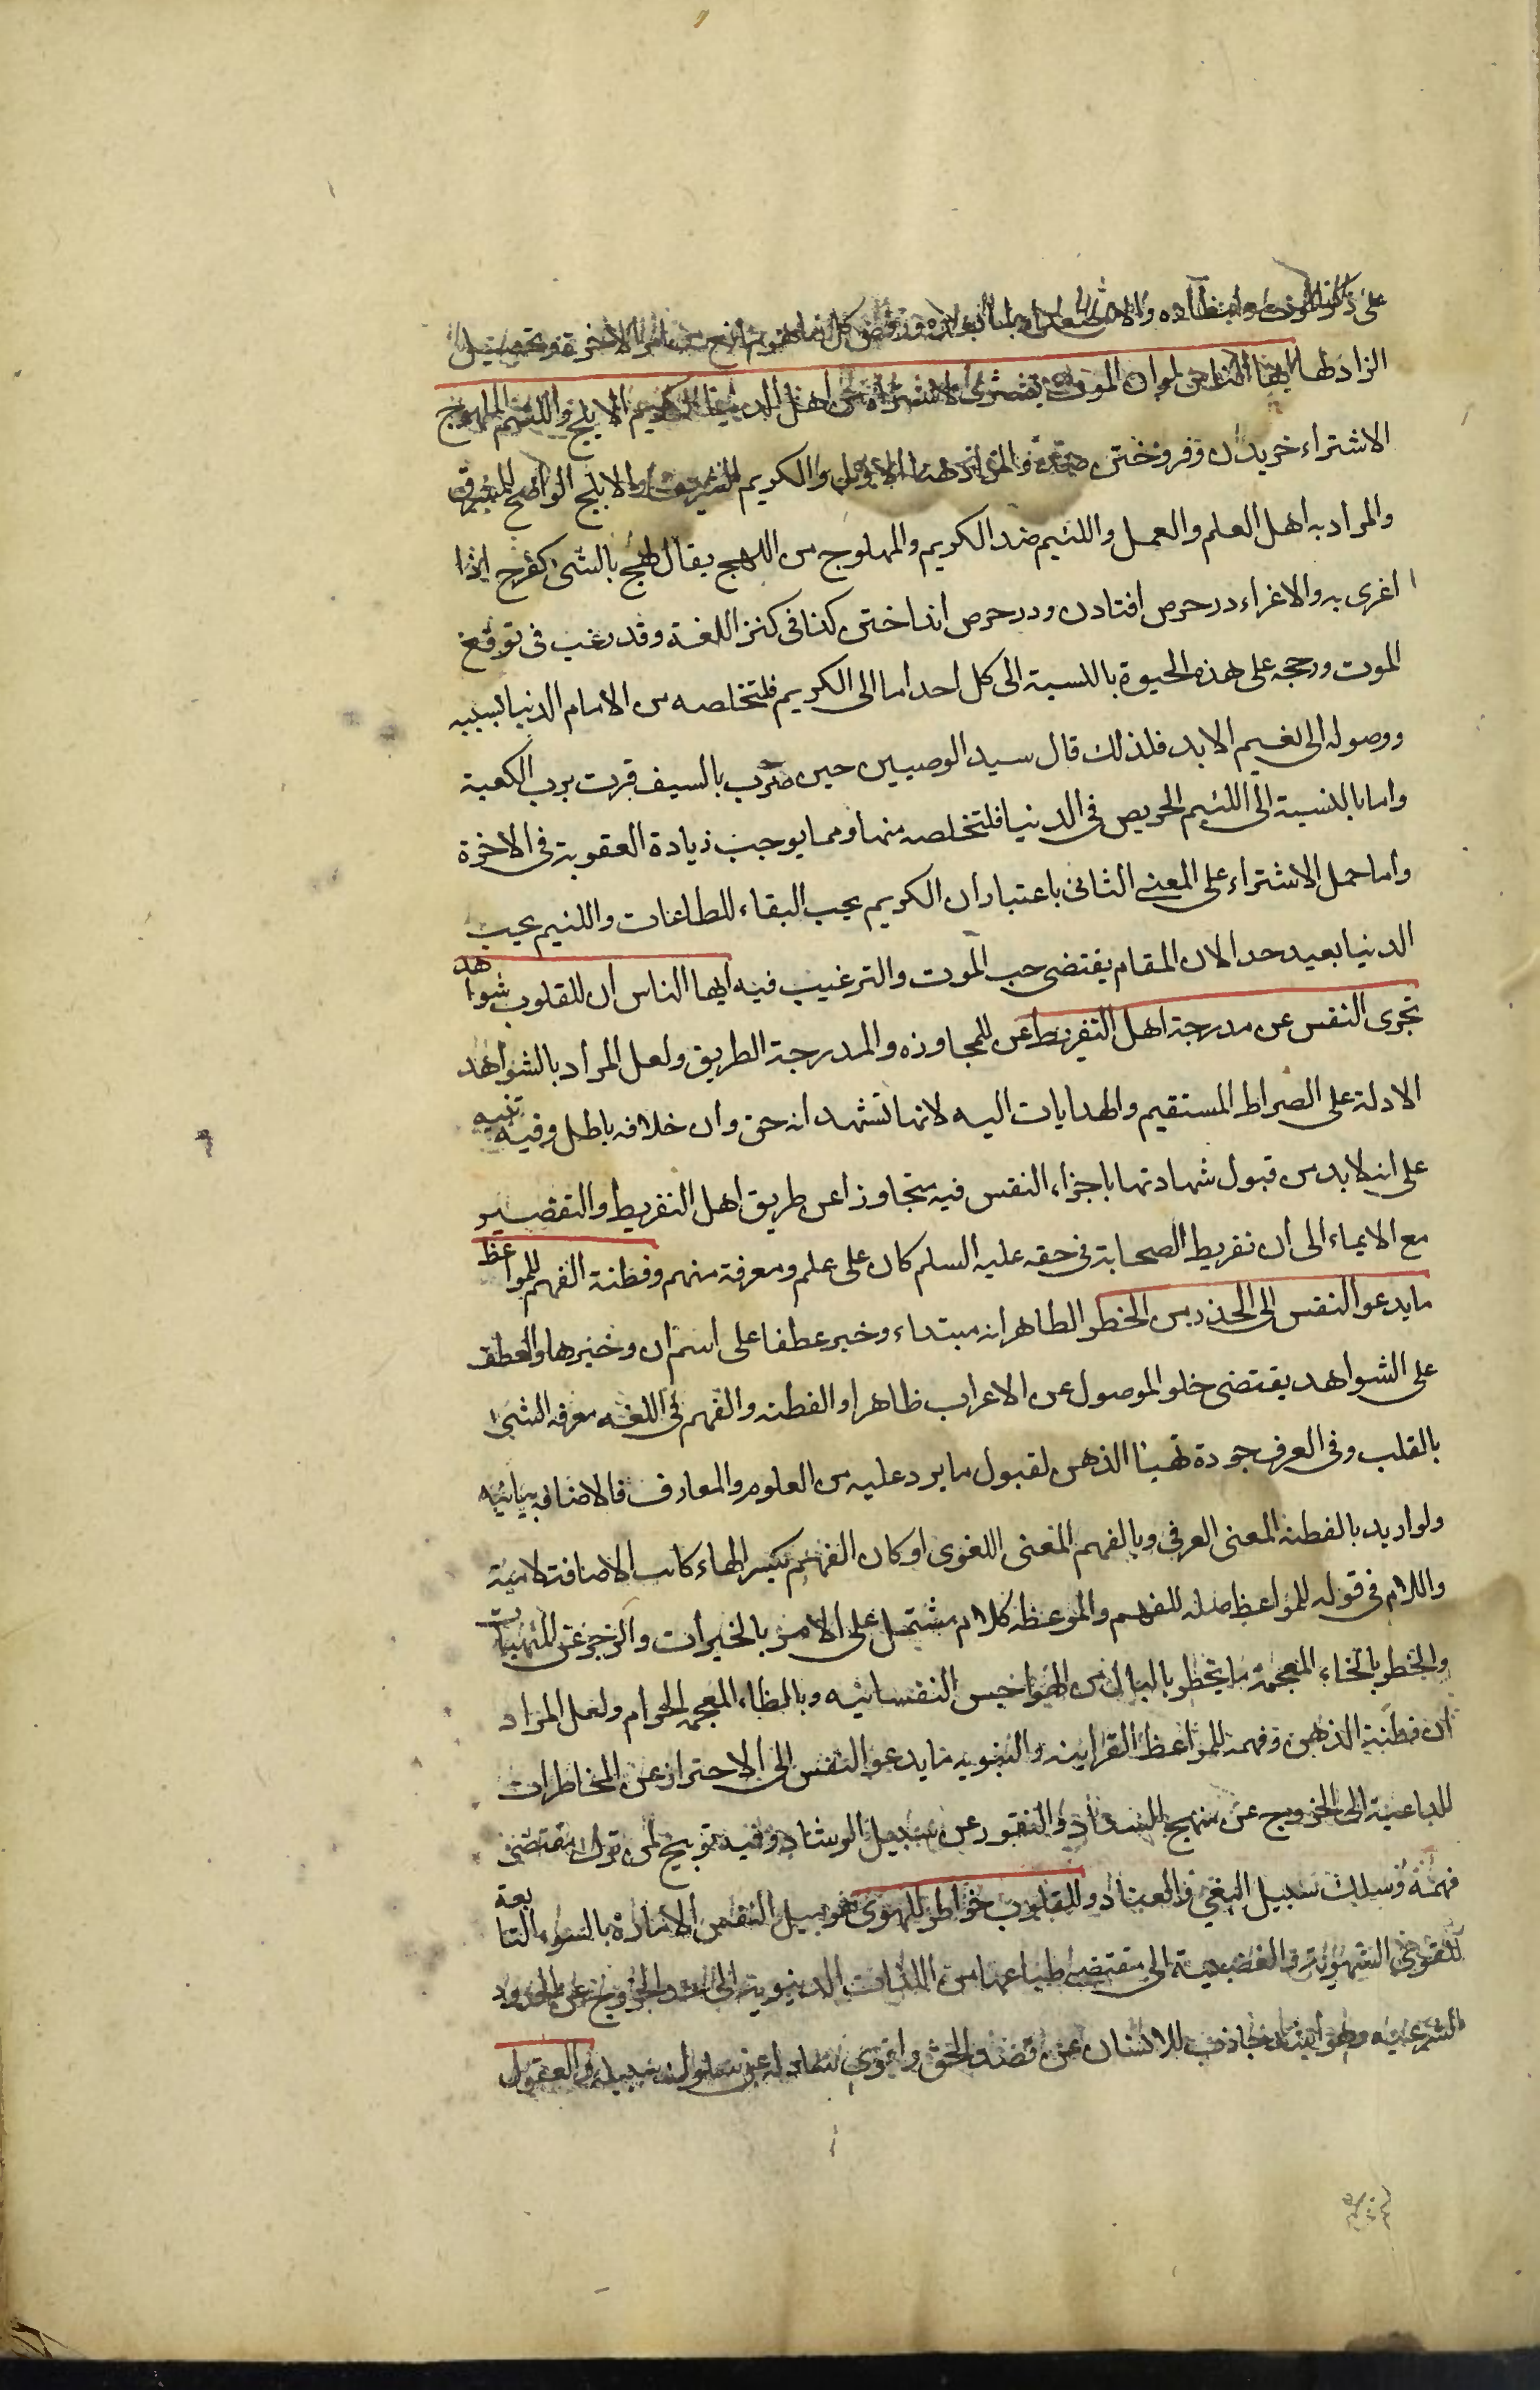 على ذكر الموت وانتظاره
الزاد لها ايها الناس لو ان الموت يشترى لاشتراه من اهل الدنيا الكريم الابلج واللئيم الملهوج
الاشتراء خريدن وفروختن ضد والمراد هنا الاول والكريم الشريف والابلج الواضح المشرق
والمراد به اهل العلم والعمل واللئيم ضد الكريم والملهوج من اللهج يقال لهج بالشى كفرح اذا
اغرى به والاغراء در حرص افتادن ودر حرص انداختن كذا فى كنز اللغة وقد رغب فى توقع
الموت ورجحه على هذه الحيوة بالنسبة الى كل احد اما الى الكريم فلتخلصه من الالام الدنيا بسببه
ووصوله الى نعيم الابد فلذلك قال سيد الوصيين حين ضرب بالسيف فزت برب الكعبة
واما بالنسبة الى اللئيم الحريص فى الدنيا فلتخلصه منها ومما يوجب زيادة العقوبة فى الاخرة
واما حمل الاشتراء على المعنى الثانى باعتبار ان الكريم يحب البقاء للطاعات واللئيم يحب
الدنيا بعيد جدا لان المقام يقتضى حب الموت والترغيب فيه ايها الناس ان للقلوب شواهد
تجرى النفس عن مدرجة اهل التفريط عن للمجاوزه والمدرجة الطريق ولعل المراد بالشواهد
الادلة على الصراط المستقيم والهدايات اليه لانها تشهد انه حق وان خلافه باطل وفيه تنبيه
على انه لابد من قبول شهادتها باجراء النفس فيه متجاوزا عن طريق اهل التفريط والتقصير
مع الايماء الى ان تفريط الصحابة فى حقه عليه السلم كان على علم ومعرفة منهم وفطنة الفهم للمواعظ
ما يدعو النفس الى الحذر من الخطر الظاهر انه مبتداء وخبر عطفا على اسم ان وخبرها والعطف
على الشواهد يقتضى خلو الموصول عن الاعراب ظاهرا والفطنه والفهم فى اللغه معرفه الشىء
بالقلب وفى العرف جودة تهيئا الذهن لقبول ما يرد عليه من العلوم والمعارف فالاضافه بيانيه
ولو اريد بالفطنه المعنى العرفى وبالفهم المعنى اللغوى او كان الفهم بكسر الهاء كانت الاضافة لامية
واللام فى قوله للمواعظ صله للفهم والموعظه كلام مشتمل على الامر بالخيرات والزجر عن المنهيات
والخطر بالخاء المعجمة ما يخطر بالبال من الهواجس النفسانيه وبالظاء المعجمه الحرام ولعل المراد
ان فطنة الذهن وفهمه للمواعظ القرانيه والنبويه مما يدعو النفس الى الاحتراز عن المخاطرات
الداعية الى الخروج عن منهج السداد والنفور عن سبيل الرشاد وفيه توبيخ لمن ترك مقتضى
فهمه وسلك سبيل البغى والعناد وللقلوب خواطر للهوى هو ميل النفس الامارة بالسوء التابعة
للقوى الشهوية والغضبية الى مقتضى طباعها من اللذات الدنيوية الى حد الخروج عن الحدود
الشرعيه وهو اشد جاذب للانسان عن قصد الحق واقوى صاد له عن سلوك سبيله والعقول